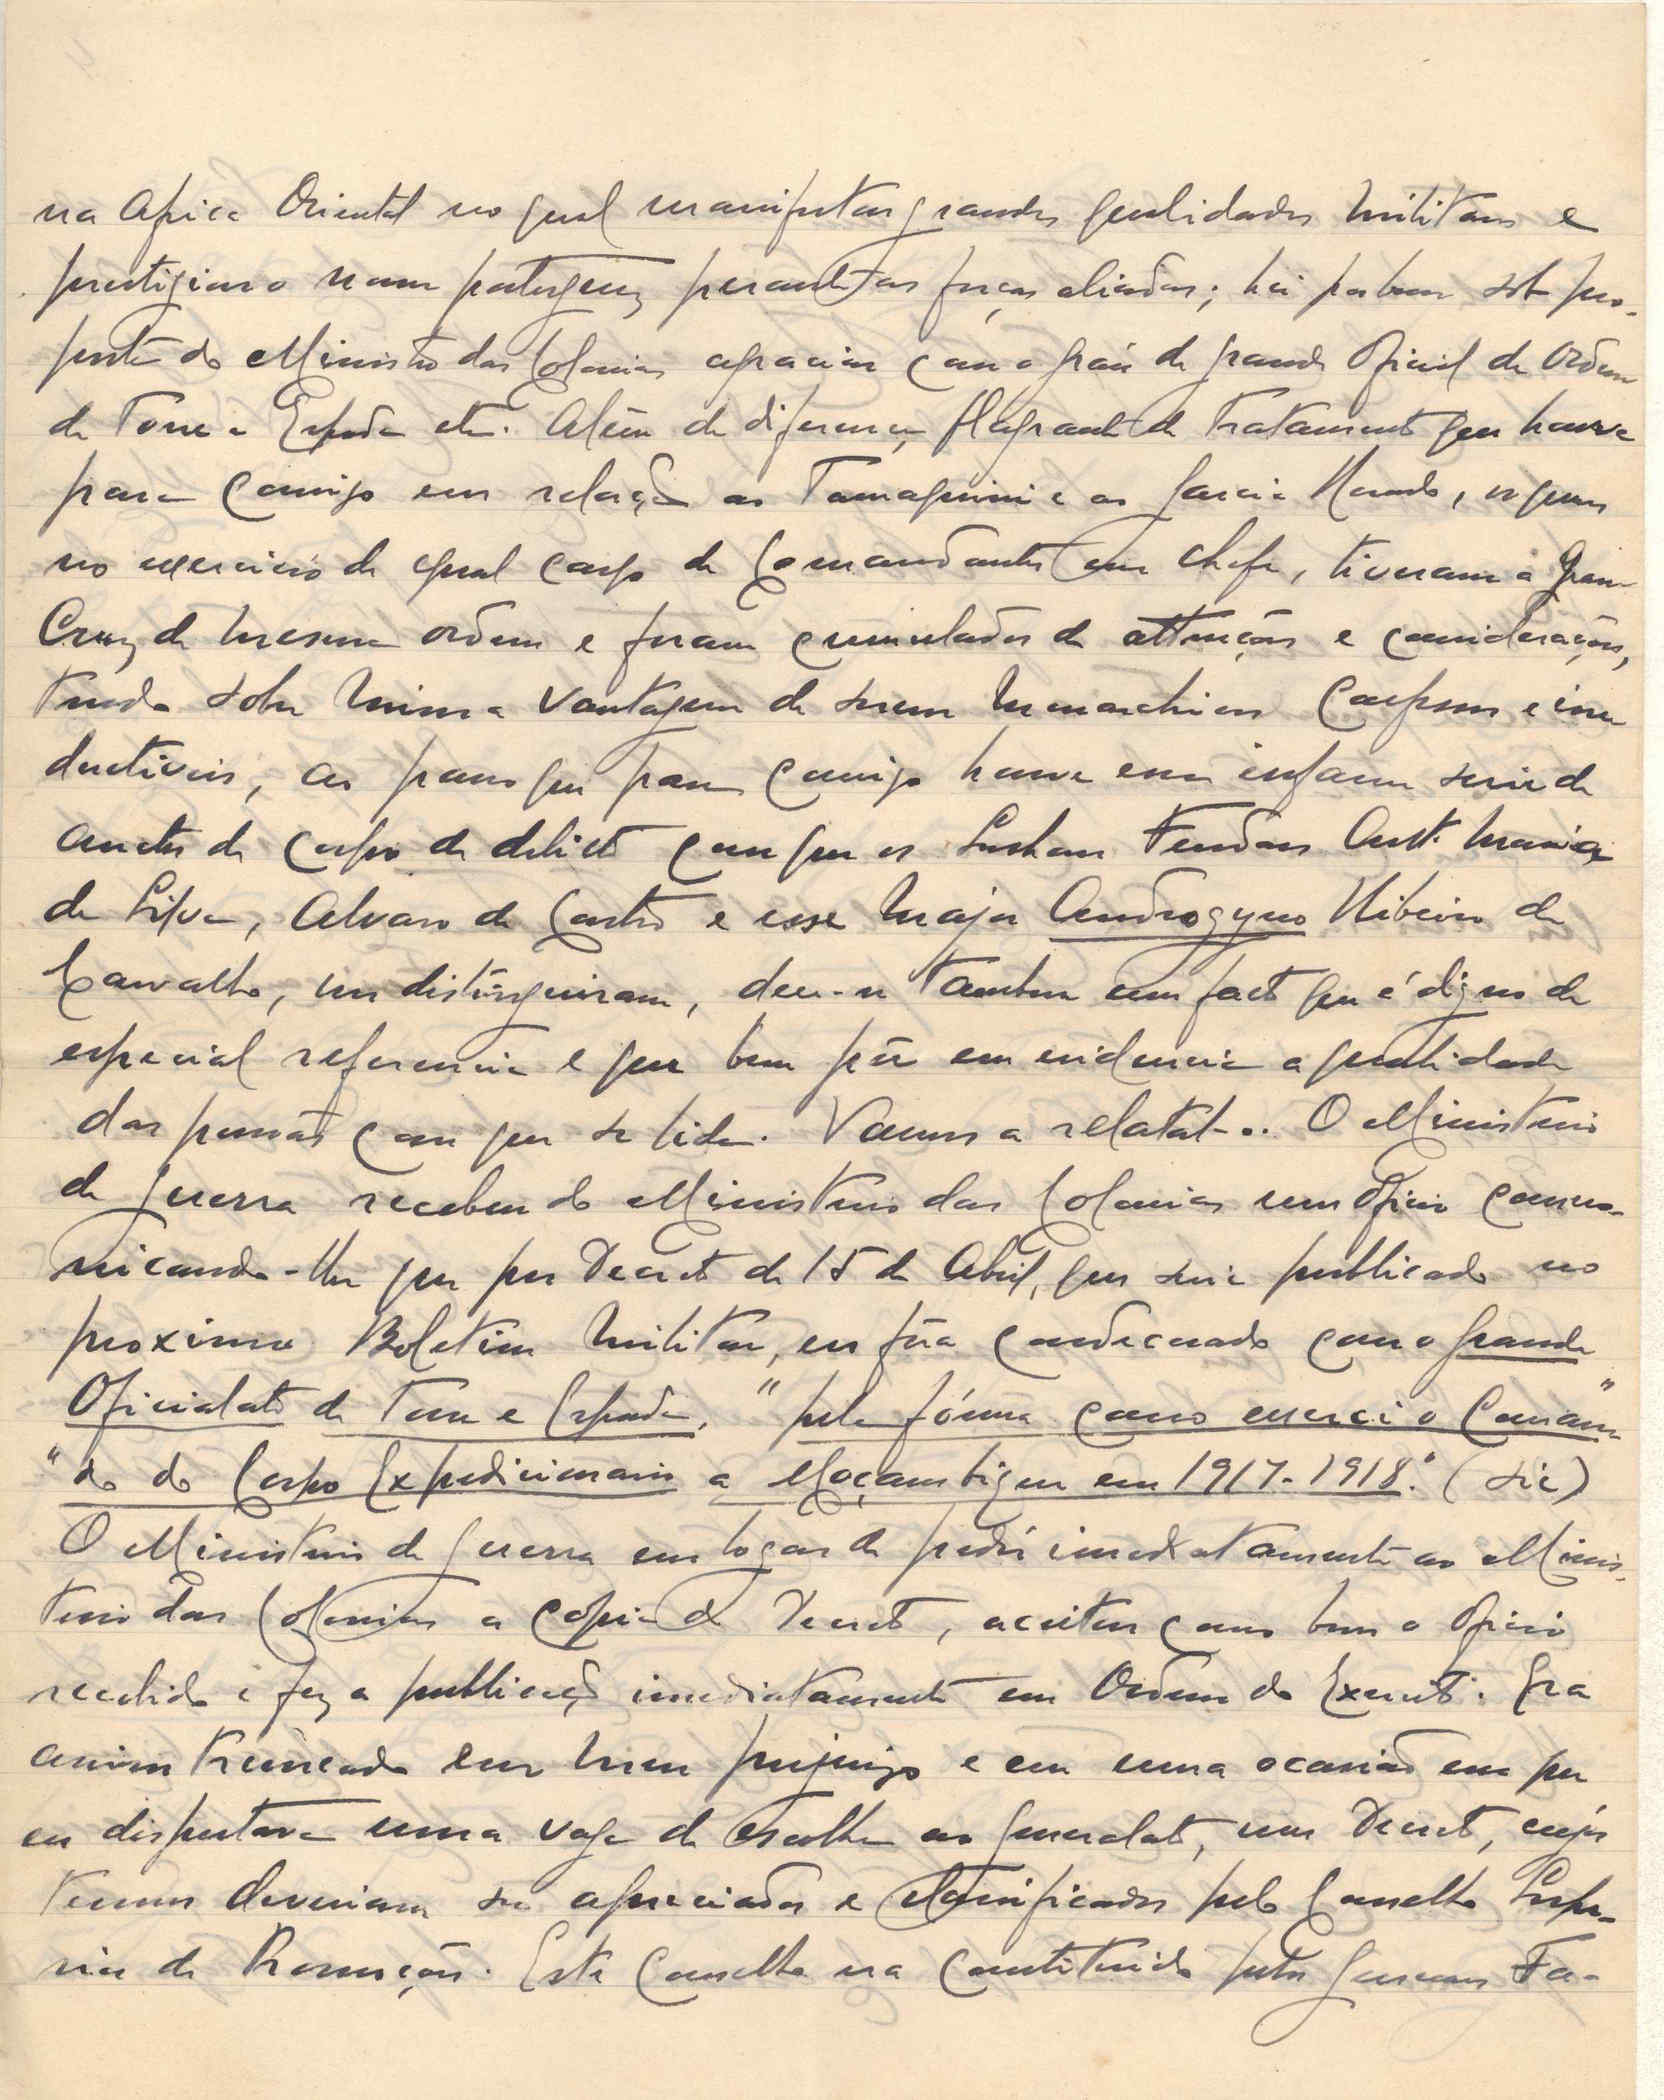 na Africa Oriental no qual manifestou grandes qualidades militares e
prestigiou o nome portuguez perante as forças aliadas; hei por bem sob pro-
posta do Ministro das Colonias agraciar com o gráu de grande Oficial da Ordem
da Torre e Espada etc. Além da diferença flagrante de tratamento que houve
para comigo em relação ao Tamagnini e ao Garcia Rosado, os quaes
no exercicio de egual cargo de Comandantes em chefe, tiveram a Gran
Cruz da mesma ordem e foram cumulados de attenções e considerações,
tendo sobre mim a vantagem de serem monarchicos
ao passo que para comigo houve uma infame serie de
autos de corpo de delicto com que os
da Silva, Alvaro de Castro e esse major Androgyno Ribeiro de
Carvalho, me distinguiram, deu-se tambem um facto que é digno de
especial referencia e que bem põe em evidencia a qualidade
das pessoas com que se lida. Vamos a relatal-o. O Ministerio
da Guerra recebeu do Ministerio das Colonias um oficio comu-
nicando-lhe que por Decreto de 15 de Abril, que seria publicado no
proximo Boletim Militar, eu fôra condecorado com o grande
Oficialato da Torre e Espada, "pela fórma como exerci o Coman-"
"do do Corpo Expedicionario a Moçambique em 1917-1918." (sic)
O Ministerio da Guerra em logar de pedir imediatamente ao Minis-
terio das Colonias a copia do Decreto, aceitou como bom o oficio
recebido e fez a publicação imediatamente em Ordem do Exercito. Era
assim truncado em meu prejuizo e em uma ocasião em que
eu disputava uma vaga de escolha ao generalato, um Decreto, cujos
termos deveriam ser apreciados e classificados pelo Conselho Supe-
rior de Promoções. Este Conselho era constituido pelos Generaes